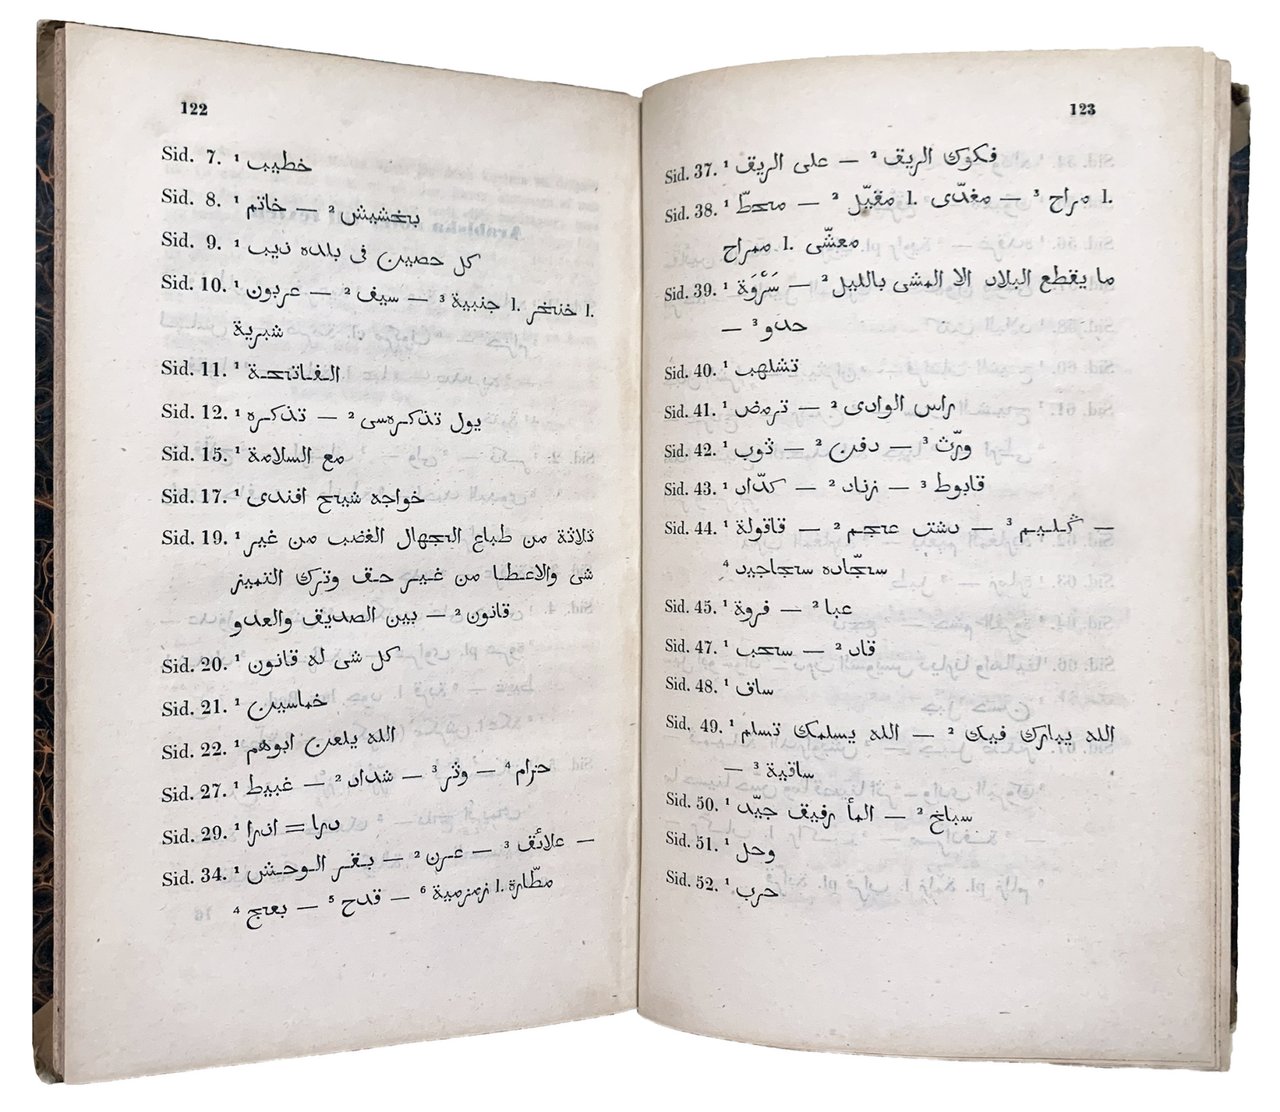 122
Sid. 7. ¹ خطيب
Sid. 8. ¹ خاتم — ² بخشيش
Sid. 9. ¹ كل حصين فى بلده ذيب
Sid. 10. ¹ عربون — ² سيف — ³ جنبية l. خنجر l.
شبرية
Sid. 11. ¹ الفاتحة
Sid. 12. ¹ تذكرة — ² يول تذكرهسى
Sid. 15. ¹ مع السلامة
Sid. 17. ¹ خواجه شيخ افندى
Sid. 19. ¹ ثلاثة من طباع الجهال الغضب من غير
شى والاعطا من غير حق وترك التميز
بين الصديق والعدو — ² قانون
Sid. 20. ¹ كل شى له قانون
Sid. 21. ¹ خماسين
Sid. 22. ¹ الله يلعن ابوهم
Sid. 27. ¹ غبيط — ² شداد — ³ وثر — ⁴ حزام
Sid. 29. ¹ اذرا = درا
Sid. 34. ¹ بقر الوحش — ² عرن — ³ علائق —
⁴ بعج — ⁵ قدح — ⁶ زمزمية l. مطّارة
123
Sid. 37. ¹ على الريق — ² فكوك الريق
Sid. 38. ¹ محطّ — ² مقيّل l. مغدّى — ³ مراح l.
معشّى l. ممراح
Sid. 39. ¹ سَرْوَة — ² ما يقطع البلاد الا المشى بالليل
— ³ حدو
Sid. 40. ¹ تشلهب
Sid. 41. ¹ ترمض — ² راس الوادى
Sid. 42. ¹ ذوب — ² دفن — ³ ورّث
Sid. 43. ¹ كدّاد — ² زناد — ³ قابوط
Sid. 44. ¹ قاقولة — ² دشتى عجم — ³ گليم —
⁴ سجّاده سجاجيد
Sid. 45. ¹ فروة — ² عبا
Sid. 47. ¹ سحب — ² قاد
Sid. 48. ¹ ساق
Sid. 49. ¹ الله يسلمك تسلم — ² الله يبارك فيك
— ³ ساقية
Sid. 50. ¹ المأ رفيق جيّد — ² سباخ
Sid. 51. ¹ وحل
Sid. 52. ¹ حرب